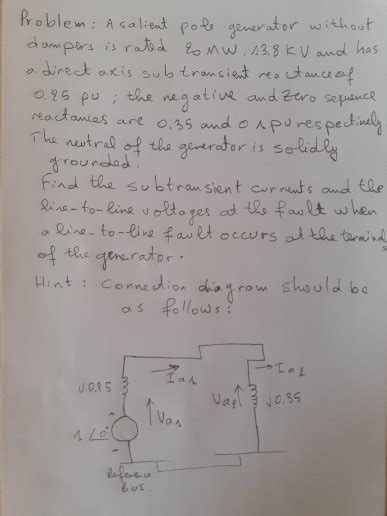 Problem: A salient pole generator without
dampers is rated 20 MW, 13.8 KV and has
a direct axis subtransient reactance of
0.25 pu; the negative and zero sequence
reactances are 0.35 and 0.1 pu respectinely
The neutral of the generator is solidly
grounded.
Find the subtransient currents and the
line-to-line voltages at the fault when
a line-to-line fault occurs at the terminals
of the generator.
Hint: Connection diagram should be
as follows:
Ia1
Ia2
j0.25
Va1
Va2
j0.35
1∠0°
Reference
bus.